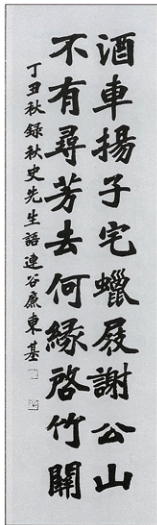 酒車揚子宅蠟屐謝公山
不有尋芳去何緣啓竹關
丁丑秋錄秋史先生語連谷廉東基